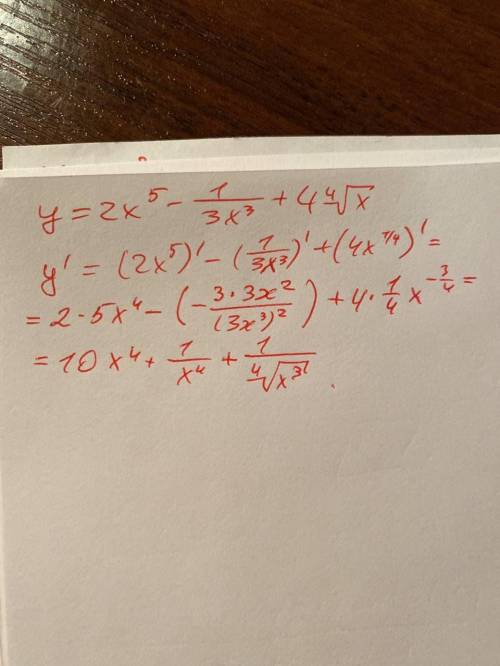 y = 2x⁵ - 1/(3x³) + 4 ⁴√x
y' = (2x⁵)' - (1/(3x³))' + (4x^(1/4))' =
= 2·5x⁴ - (- (3·3x²)/((3x³)²)) + 4·(1/4)x^(-3/4) =
= 10x⁴ + 1/x⁴ + 1/(⁴√(x³)).